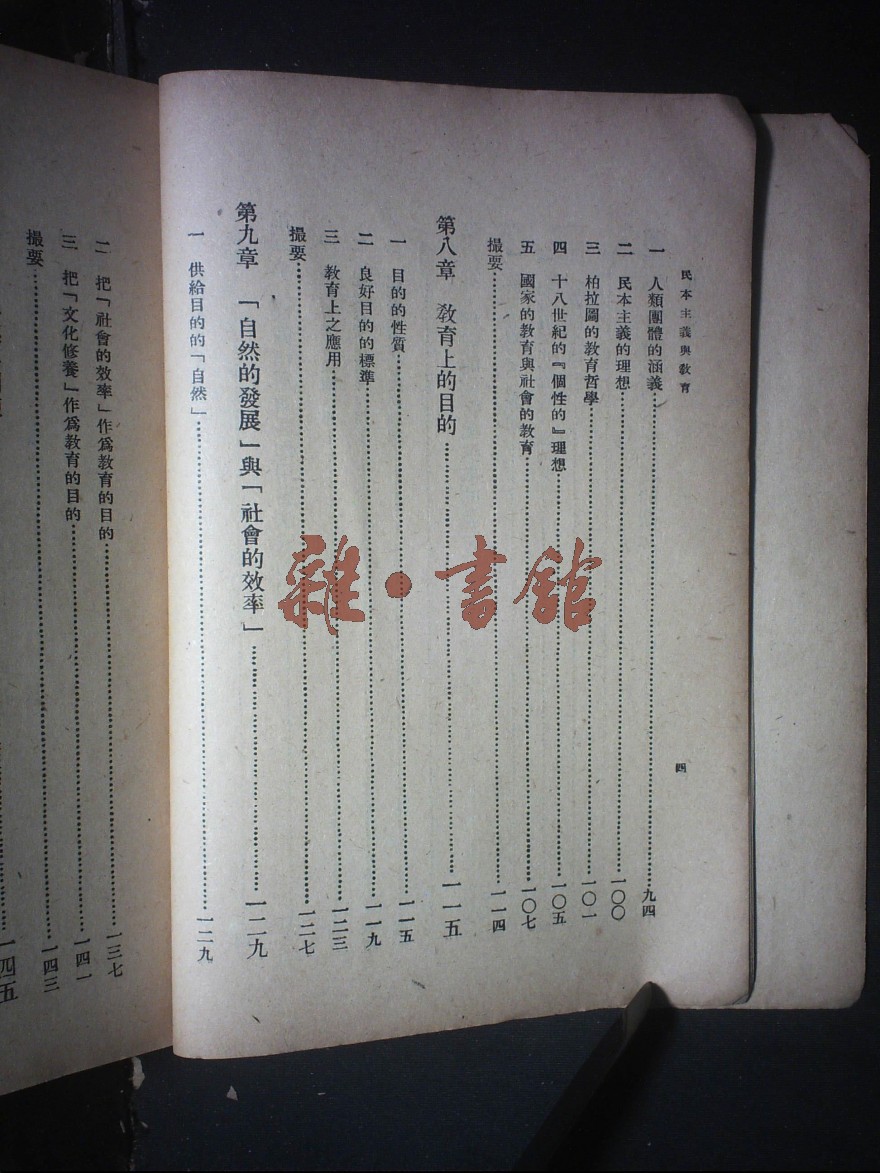 民本主義與教育
四
一 人類團體的涵義……九四
二 民本主義的理想……一〇〇
三 柏拉圖的教育哲學……一〇一
四 十八世紀的『個性的』理想……一〇五
五 國家的教育與社會的教育……一〇七
撮要……一一四
第八章 教育上的目的……一一五
一 目的的性質……一一五
二 良好目的的標準……一一九
三 教育上之應用……一二三
撮要……一二七
第九章 「自然的發展」與「社會的效率」……一二九
一 供給目的的「自然」……一二九
二 把「社會的效率」作爲教育的目的……一三七
三 把「文化修養」作爲教育的目的……一四一
撮要……一四三
一四五
雜·書館